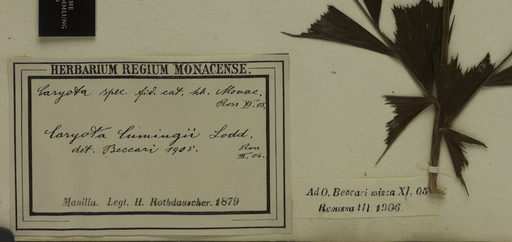 MMLUNG
HERBARIUM REGIUM MONACENSE.
Caryota spec. fid. cat. hb. Monac.
Ross XI. 05.
Caryota Cumingii Lodd.
det. Beccari 1905.
Ross
III. 06.
Manilla. Legt. H. Rothdauscher. 1879
Ad O. Beccari missa XI. 05
Remissa III. 1906.